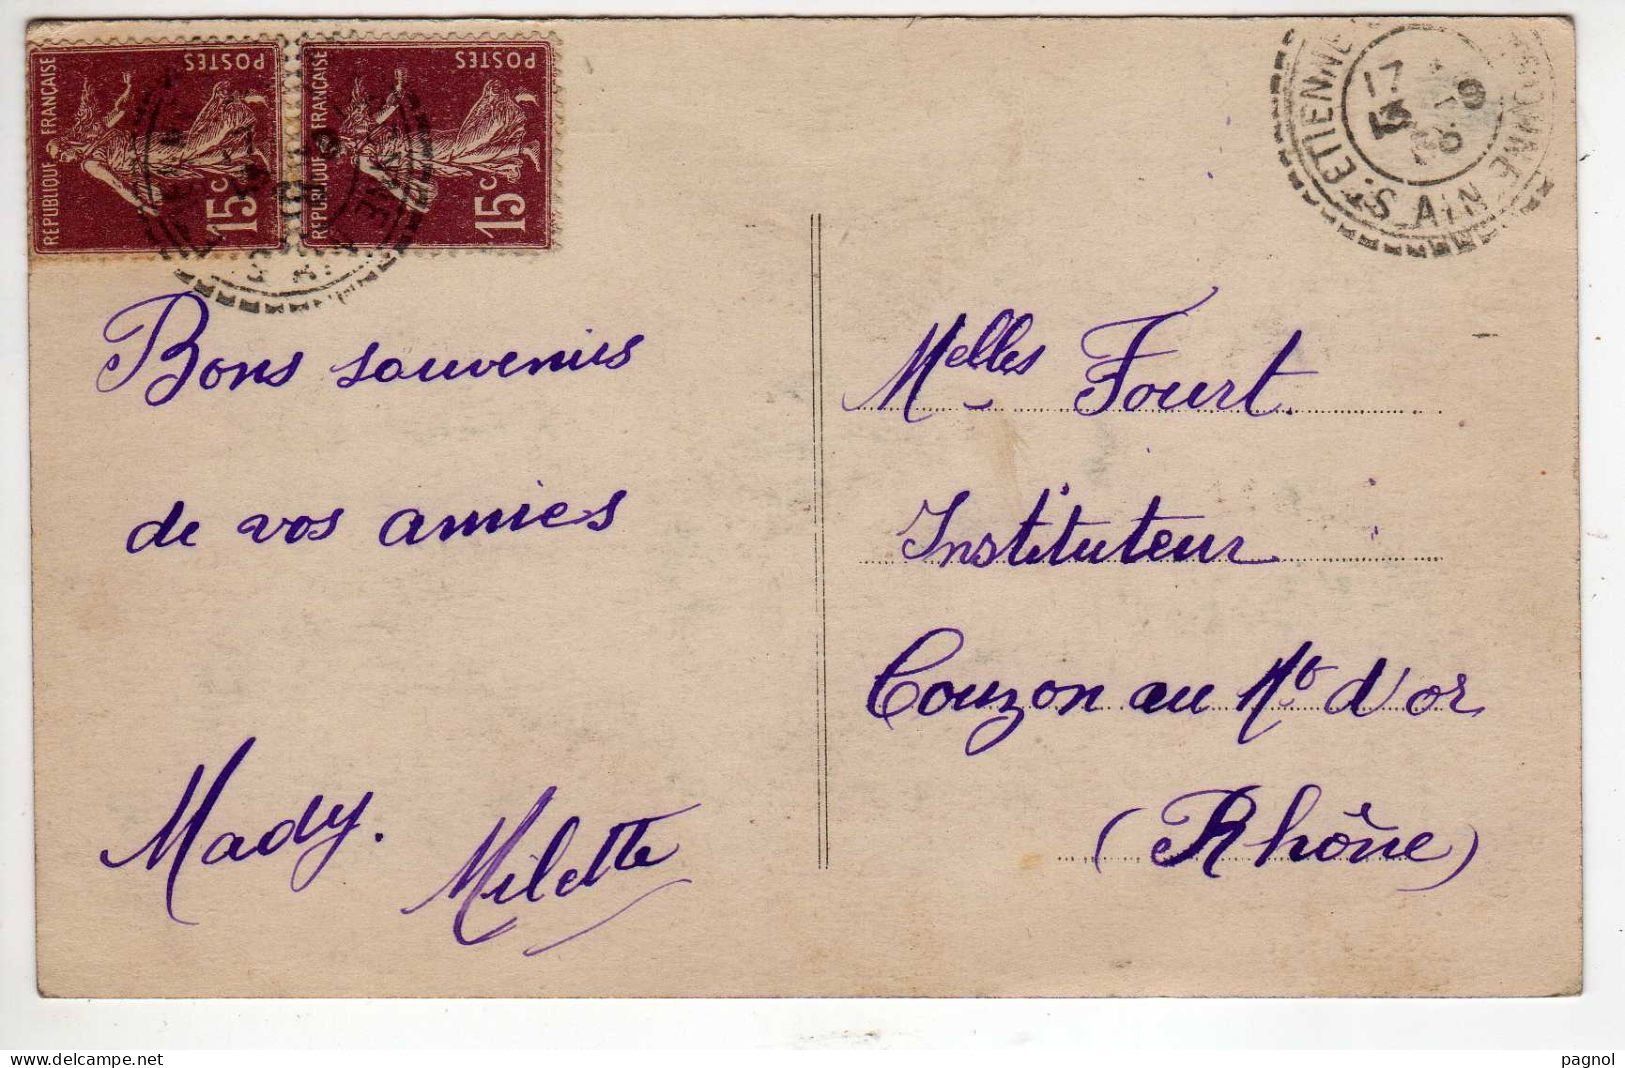 REPUBLIQUE FRANÇAISE
POSTES
15c
REPUBLIQUE FRANÇAISE
POSTES
15c
17
13
9
ST ETIENNE
AIN
Bons souvenirs
de vos amies
Mady.
Milette
Melles Fourt
Instituteur
Couzon au Mt d'or
(Rhône)
pagnol